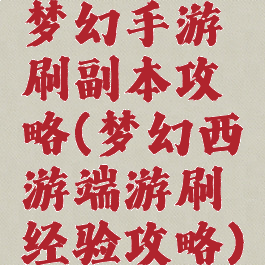 梦幻手游
刷副本攻
略(梦幻西
游端游刷
经验攻略)